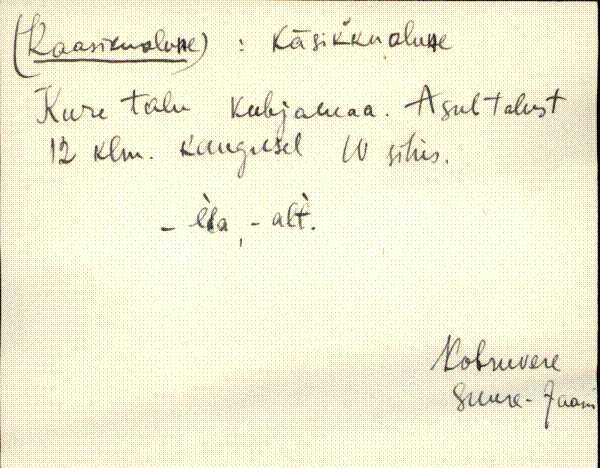 (Kaasikualune) : Käsikkualune
Kure talu kubjamaa. Asub talust
12 klm. kaugusel W sihis.
-ĺla, -alt.
Kobruvere
Suure-Jaani